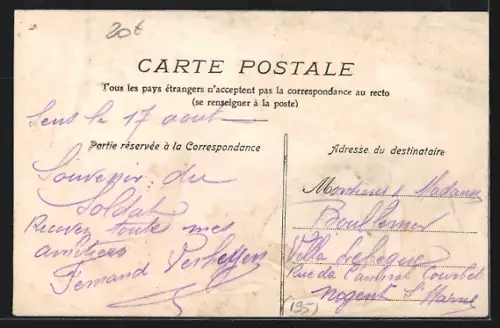 20€
CARTE POSTALE
Tous les pays étrangers n'acceptent pas la correspondance au recto
(se renseigner à la poste)
Sens le 17 aout
Partie réservée à la Correspondance
Souvenir du
Soldat
Recevez toute mes
amitiées
Fernand
Adresse du destinataire
Monsieur & Madame
Villa
Rue de Courbet
Nogent s/Marne
(195)